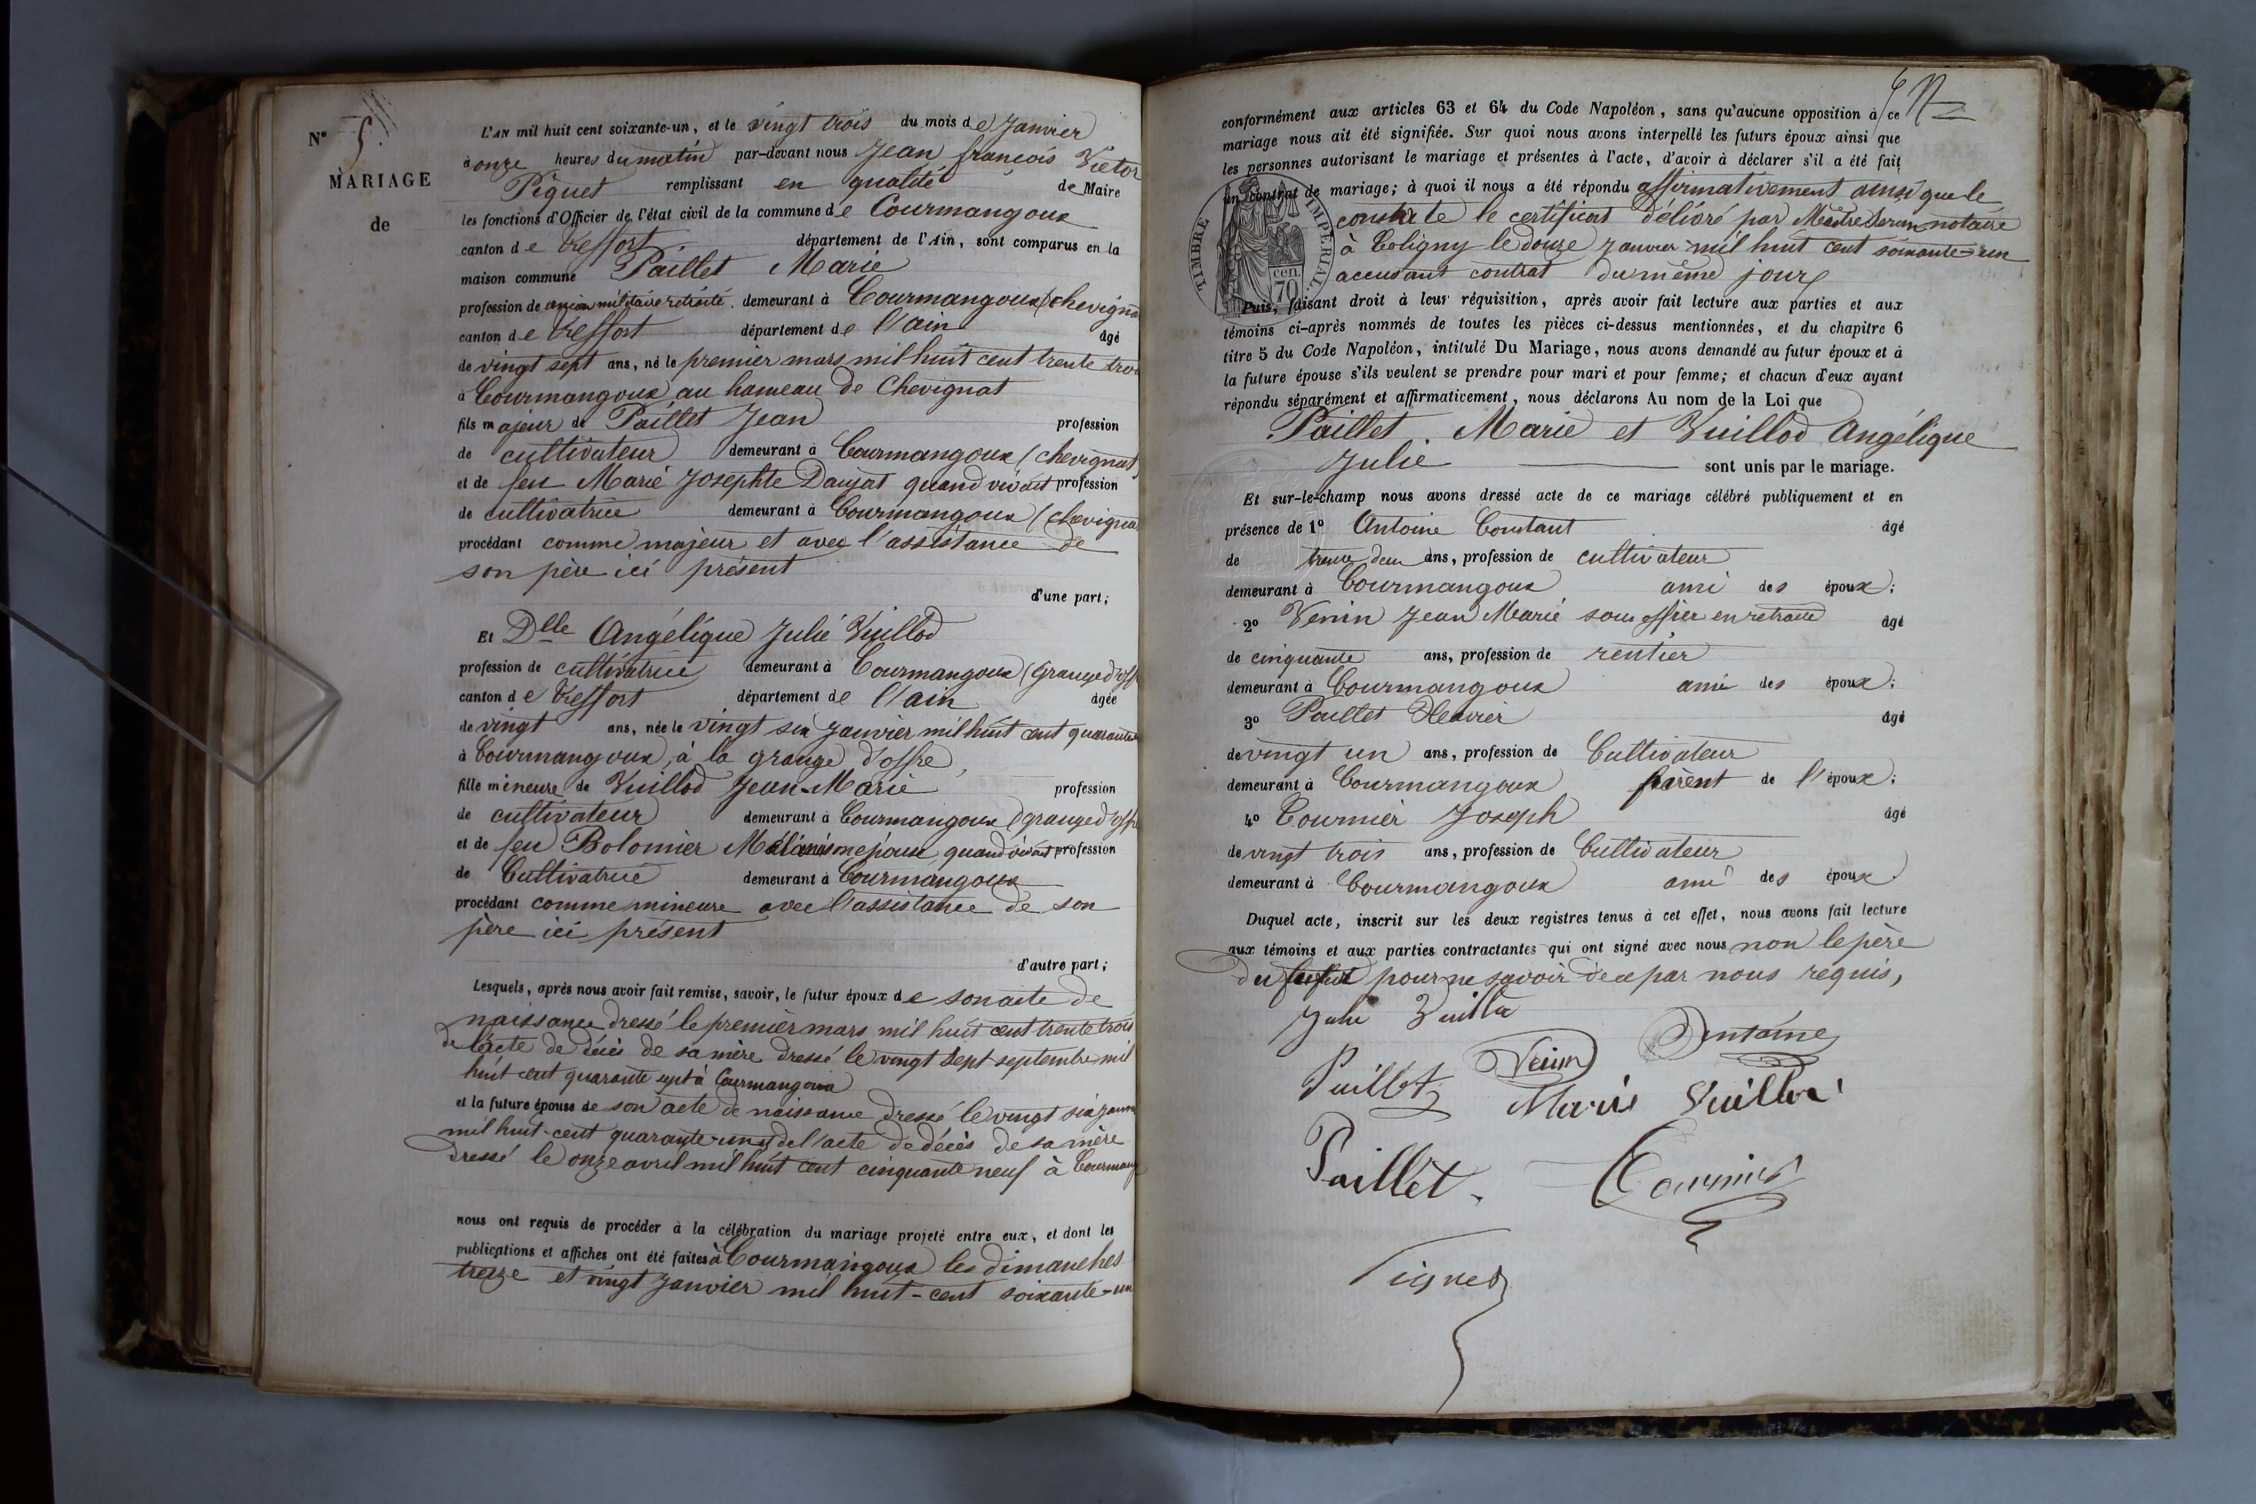 N° 5.
MARIAGE
de
L'AN mil huit cent soixante-un, et le vingt trois du mois de Janvier
à onze heures du matin par-devant nous Jean françois Victor
Piquet remplissant en qualité de Maire
les fonctions d'Officier de l'état civil de la commune de Courmangoux
canton de Treffort département de l'Ain, sont comparus en la
maison commune Paillet Marie
profession de ancien militaire retraité demeurant à Courmangoux (chevignat
canton de Treffort département de l'ain âgé
de vingt sept ans, né le premier mars mil huit cent trente trois
à Courmangoux au hameau de Chevignat
fils majeur de Paillet Jean profession
de cultivateur demeurant à Courmangoux (chevignat)
et de feu Marie Josephte Daujat quand vivait profession
de cultivatrice demeurant à Courmangoux (chevignat
procédant comme majeur et avec l'assistance de
son père ici présent
d'une part;
Et Dlle Angélique Julie Vuillod
profession de cultivatrice demeurant à Courmangoux (Grange d'offre
canton de Treffort département de l'ain âgée
de vingt ans, née le vingt six Janvier mil huit cent quarante
à Courmangoux, à la grange d'offre,
fille mineure de Vuillod Jean-Marie profession
de cultivateur demeurant à Courmangoux (grange d'offre
et de feu Bolomier Mélanie son épouse, quand vivait profession
de Cultivatrice demeurant à Courmangoux
procédant comme mineure avec l'assistance de son
père ici présent
d'autre part;
Lesquels, après nous avoir fait remise, savoir, le futur époux de son acte de
naissance dressé le premier mars mil huit cent trente trois
de l'acte de décès de sa mère dressé le vingt sept septembre mil
huit cent quarante sept à Courmangoux
et la future épouse de son acte de naissance dressé le vingt six janvier
mil huit-cent quarante-un, de l'acte de décès de sa mère
dressé le onze avril mil huit cent cinquante neuf à Courmang
nous ont requis de procéder à la célébration du mariage projeté entre eux, et dont les
publications et affiches ont été faites à Courmangoux les dimanches
treize et vingt Janvier mil huit-cent soixante-un
conformément aux articles 63 et 64 du Code Napoléon, sans qu'aucune opposition à ce
mariage nous ait été signifiée. Sur quoi nous avons interpellé les futurs époux ainsi que
les personnes autorisant le mariage et présentes à l'acte, d'avoir à déclarer s'il a été fait
un contrat de mariage; à quoi il nous a été répondu affirmativement ainsi que le
constate le certificat délivré par Maître notaire
à Coligny le douze janvier mil huit cent soixante-un
accusant contrat du même jour
TIMBRE IMPÉRIAL
70 cen.
Puis, faisant droit à leur réquisition, après avoir fait lecture aux parties et aux
témoins ci-après nommés de toutes les pièces ci-dessus mentionnées, et du chapitre 6
titre 5 du Code Napoléon, intitulé Du Mariage, nous avons demandé au futur époux et à
la future épouse s'ils veulent se prendre pour mari et pour femme; et chacun d'eux ayant
répondu séparément et affirmativement, nous déclarons Au nom de la Loi que
Paillet Marie et Vuillod Angélique
Julie sont unis par le mariage.
Et sur-le-champ nous avons dressé acte de ce mariage célébré publiquement et en
présence de 1° Antoine Constant âgé
de trente deux ans, profession de cultivateur
demeurant à Courmangoux ami des époux;
2° Venin Jean Marie sous officier en retraite âgé
de cinquante ans, profession de rentier
demeurant à Courmangoux ami des époux;
3° Paillet Xavier âgé
de vingt un ans, profession de Cultivateur
demeurant à Courmangoux parent de l'époux;
4° Tournier Joseph âgé
de vingt trois ans, profession de Cultivateur
demeurant à Courmangoux ami des époux.
Duquel acte, inscrit sur les deux registres tenus à cet effet, nous avons fait lecture
aux témoins et aux parties contractantes qui ont signé avec nous non le père
du futur pour ne savoir de ce par nous requis,
Julie Vuillod
Antoine
Paillet Venin
Marie Vuillod
Paillet Tournier
Piquet